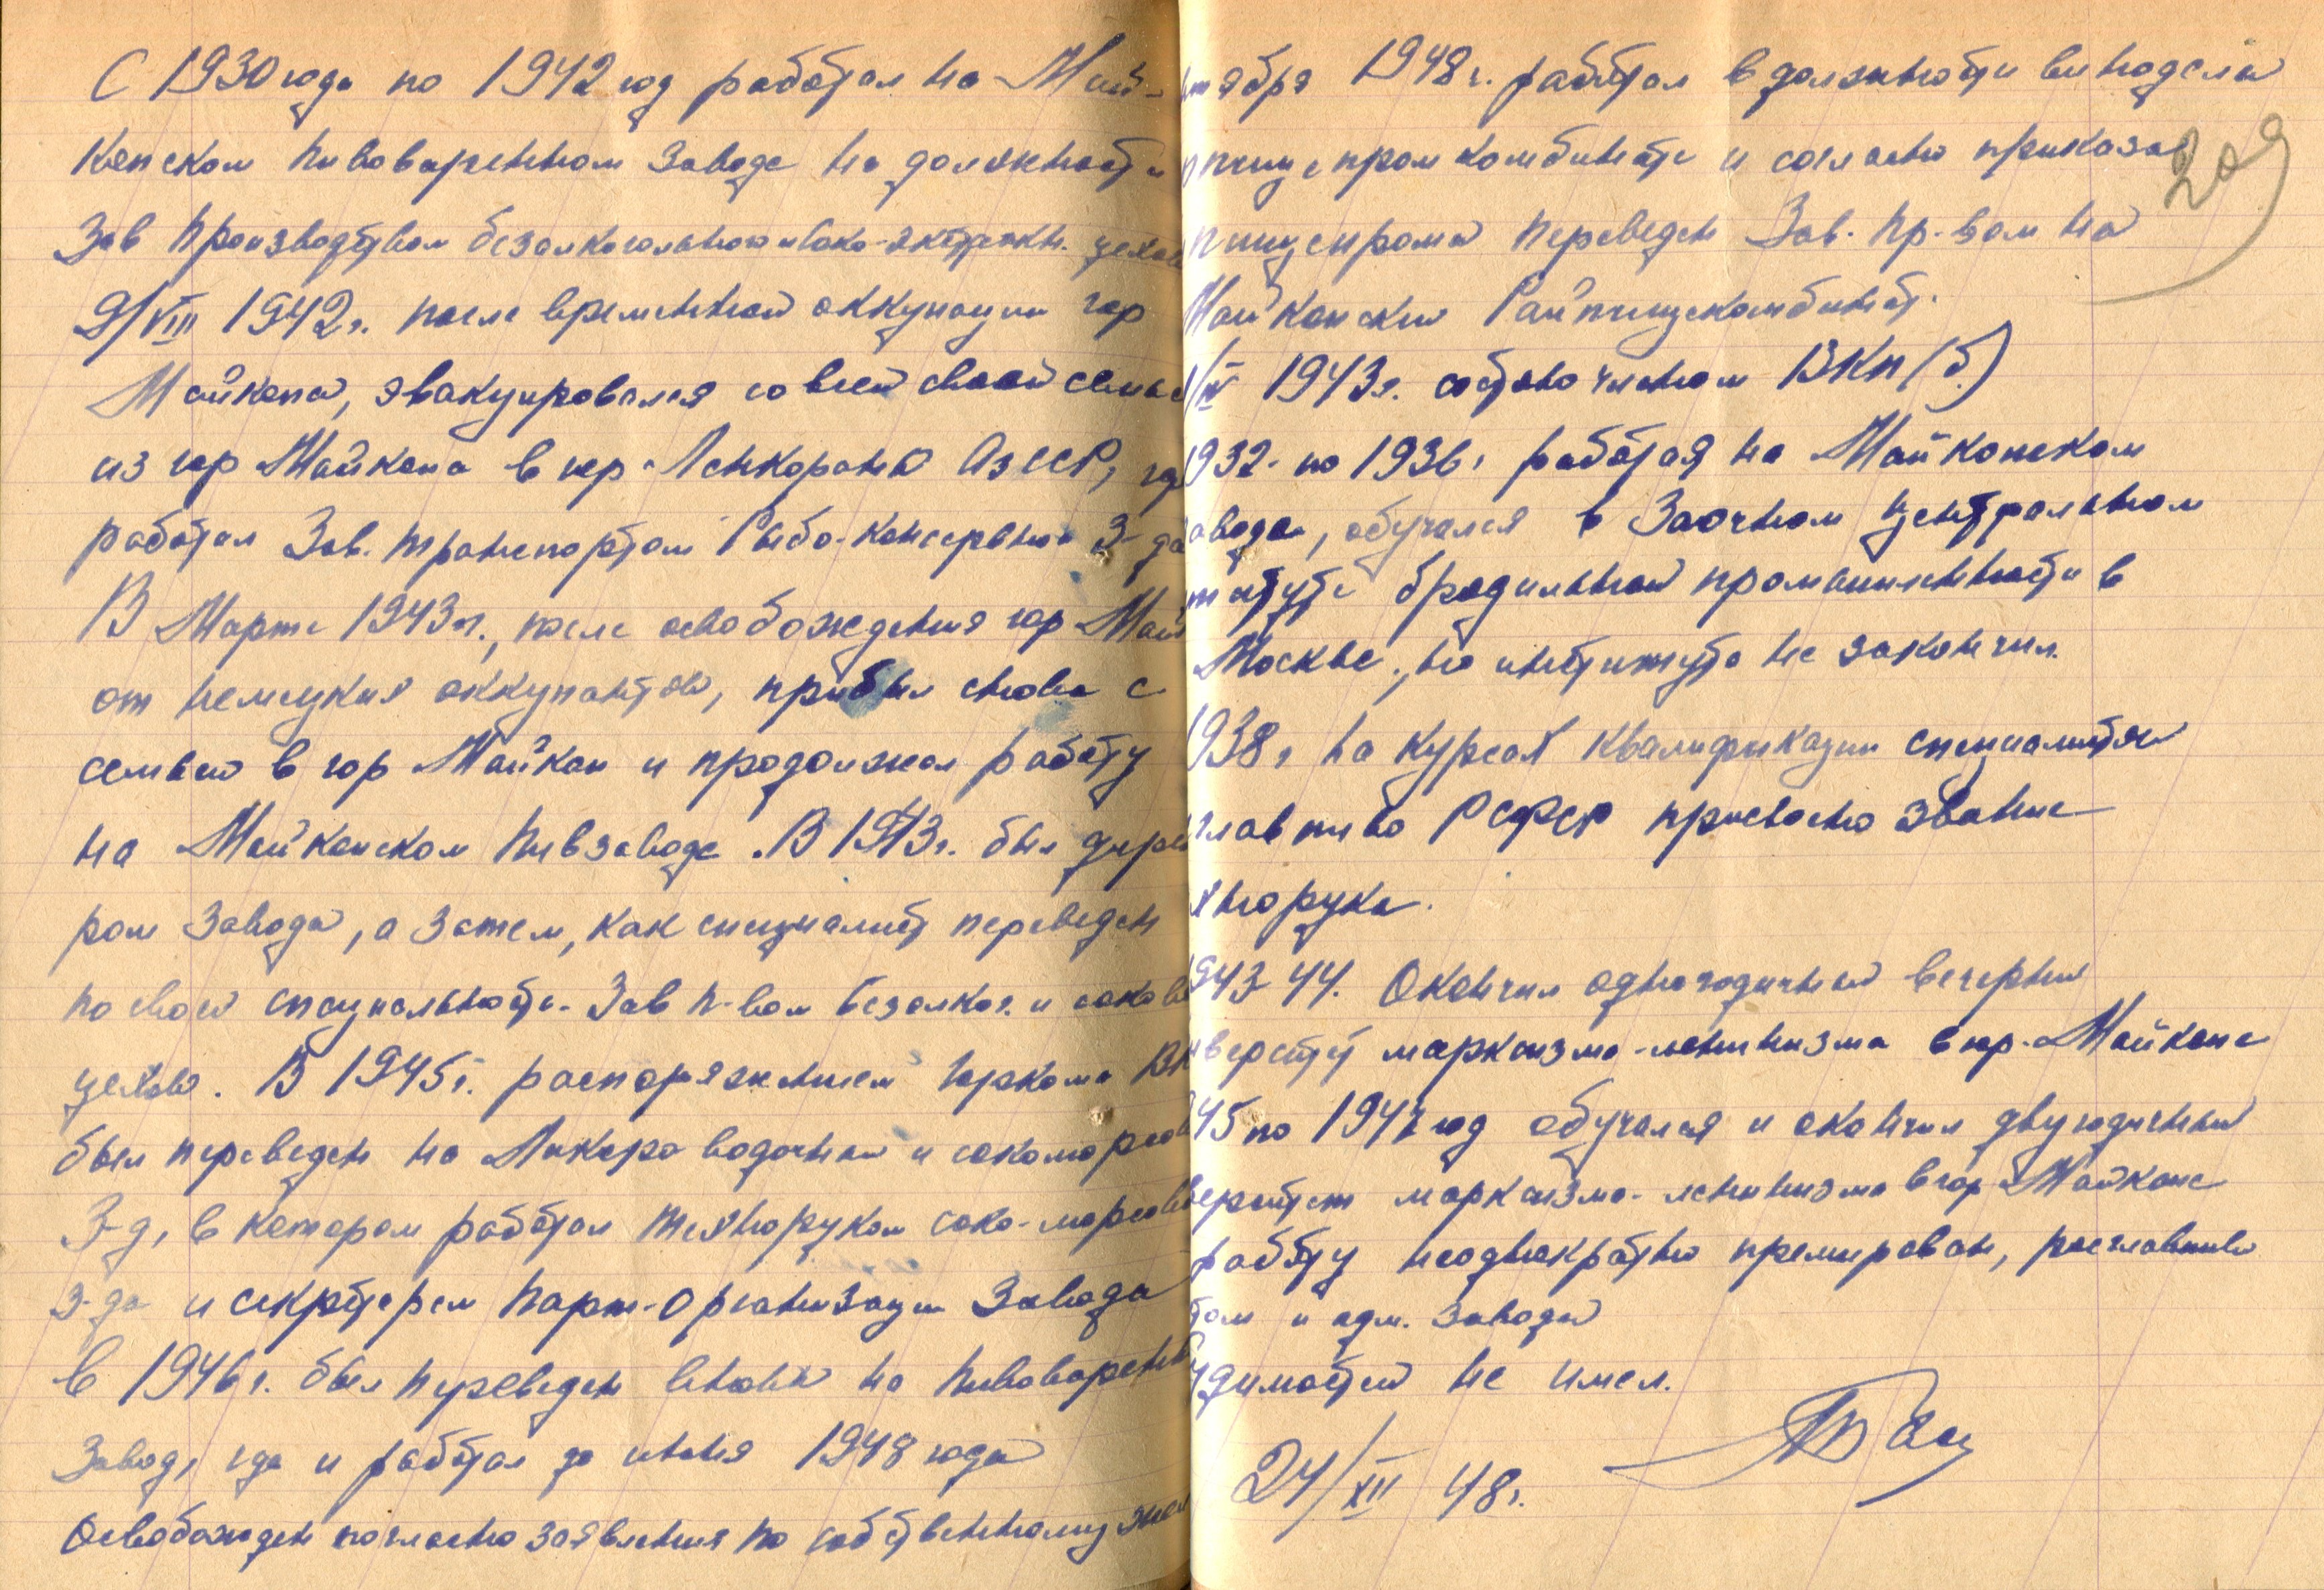 С 1930 года по 1942 год работал на Май-
копском пивоваренном заводе на должности
Зав производством безалкогольного и соко-экстрактн. цехов
9/VIII 1942 г. после временной оккупации гор
Майкопа, эвакуировался со всей своей семьей
из гор Майкопа в гор Ленкорань АзССР, где
работал Зав. транспортом Рыбо-консервного З-да
В Марте 1943 г., после освобождения гор Май
от немецких оккупантов, прибыл снова с
семьей в гор Майкоп и продолжал работу
на Майкопском Пивзаводе. В 1943 г. был дирек
ром Завода, а затем, как специалист переведен
по своей специальности Зав п-вом безалког. и соков
цехов. В 1945 г. распоряжением Горкома ВК
был переведен на Ликеро водочный и сокоморсов
З-д, в котором работал техноруком соко-морсов
з-да и секретарем парт-организации Завода
в 1946 г. был переведен вновь на Пивоварен
Завод, где и работал до июня 1948 года
Освобожден согласно заявления по собственному жел
тября 1948 г. работал в должности винодела
пищепромкомбинате и согласно приказа
пищепрома переведен Зав. пр-вом на
Майкопский Райпищекомбинат.
/IV 1943 г. состою членом ВКП(б)
1932 по 1936 г работая на Майкопском
аводе, обучался в Заочном Центральном
титуте бродильной промышленности в
Москве, но института не закончил.
1938 г на курсах квалификации специалистов
главпиво РСФСР присвоено звание
хнорука.
943-44. Окончил одногодичный вечерний
иверситет марксизма-ленинизма в гор. Майкопе
45 по 1947 год обучался и окончил двухгодичный
верситет марксизма-ленинизма в гор Майкопе
работу неоднократно премирован,
том и адм. завода
удимостей не имел.
24/XII 48 г.
209